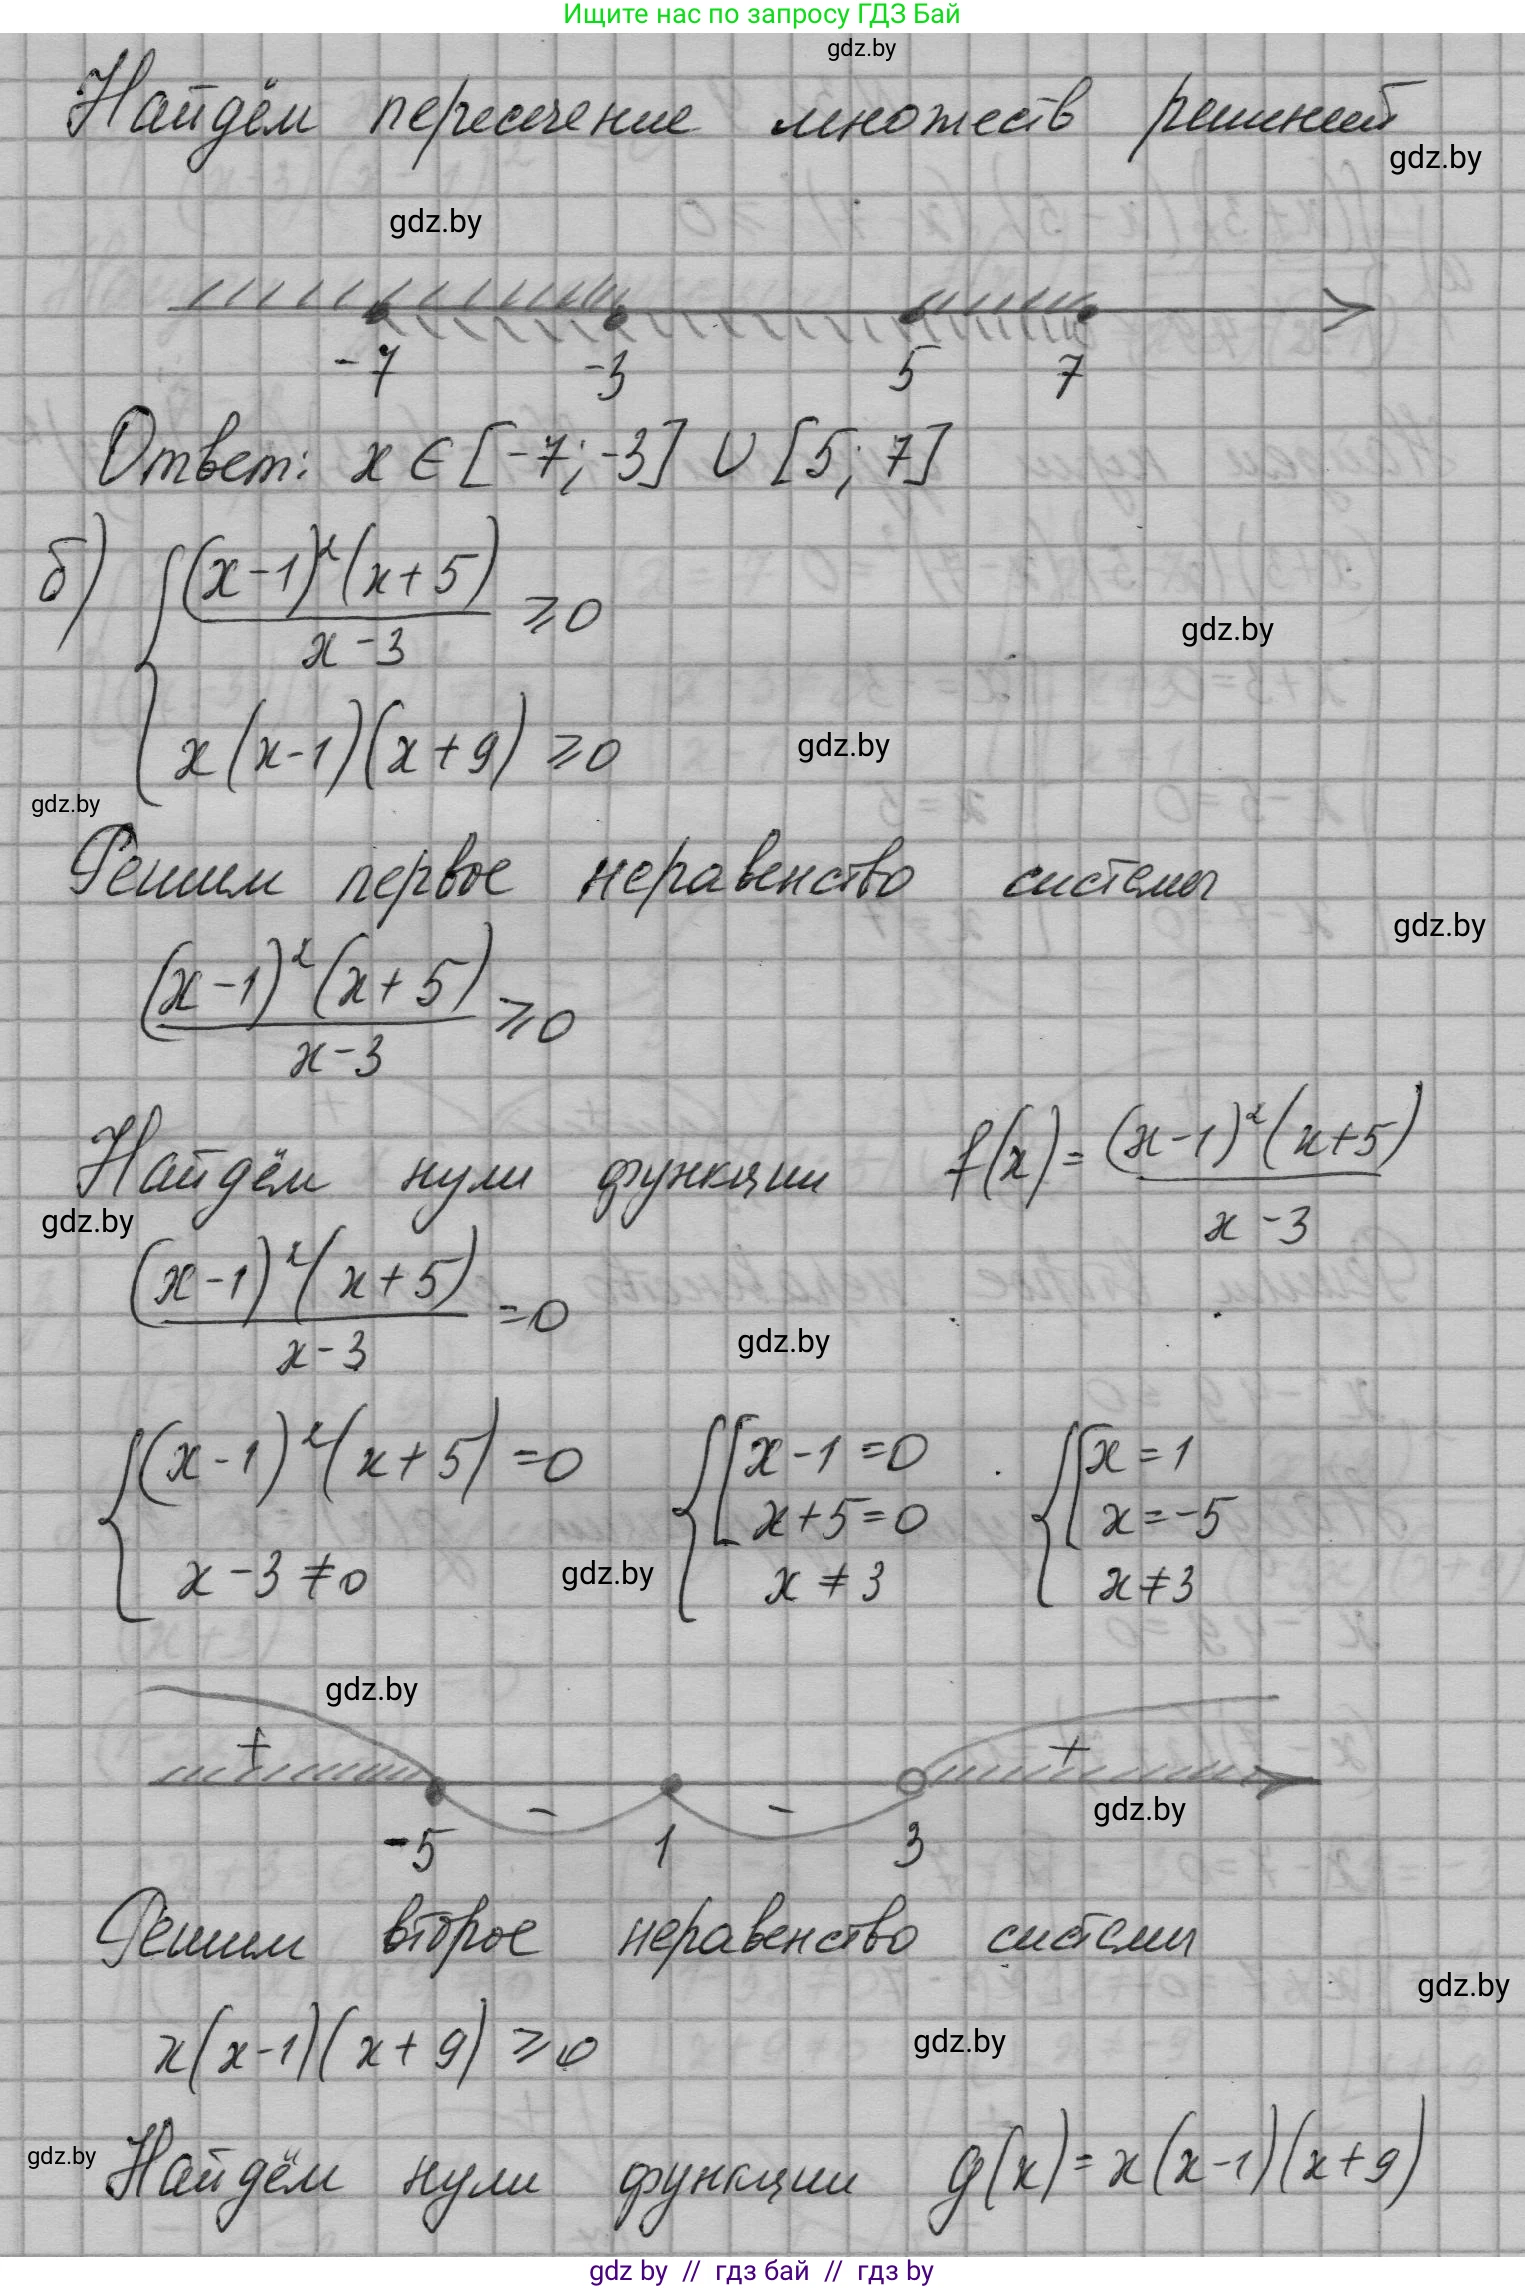 Ищите нас по запросу ГДЗ Бай
gdz.by
Найдём пересечение множеств решений
gdz.by
gdz.by
-7 -3 5 7
Ответ: x ∈ [-7; -3] ∪ [5; 7]
б) { (x-1)²(x+5) / x-3 ≥ 0
gdz.by
x(x-1)(x+9) ≥ 0
gdz.by
gdz.by
Решим первое неравенство системы
gdz.by
(x-1)²(x+5) / x-3 ≥ 0
Найдём нули функции f(x) = (x-1)²(x+5) / x-3
gdz.by
(x-1)²(x+5) / x-3 = 0
gdz.by
{ (x-1)²(x+5) = 0 { [ x-1 = 0 { [ x = 1
x+5 = 0 x = -5
x-3 ≠ 0 gdz.by x ≠ 3 x ≠ 3
gdz.by
+ - - +
gdz.by
-5 1 3
Решим второе неравенство системы
gdz.by
x(x-1)(x+9) ≥ 0
gdz.by
gdz.by
Найдём нули функции g(x) = x(x-1)(x+9)
gdz by // гдз бай // гдз by